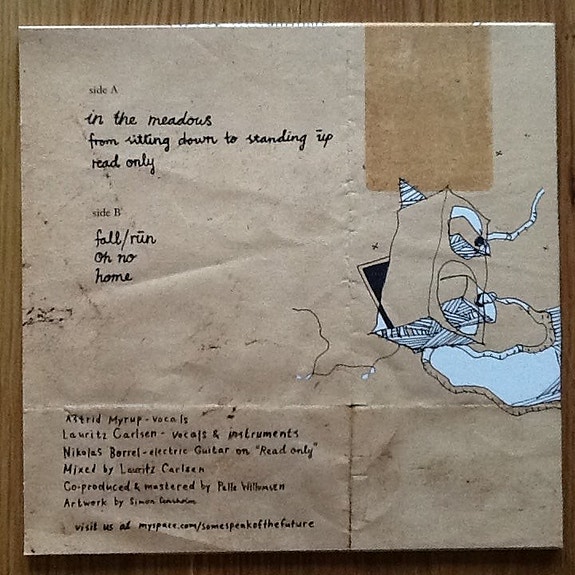 side A
in the meadows
from sitting down to standing ūp
read only
side B
fall/rūn
oh no
home
Astrid Myrup - vocals
Lauritz Carlsen - vocals & instruments
Nikolas Borrel - electric Guitar on "Read only"
Mixed by Lauritz Carlsen
Co-produced & mastered by Palle Willumsen
Artwork by Simon
visit us at myspace.com/somespeakofthefuture